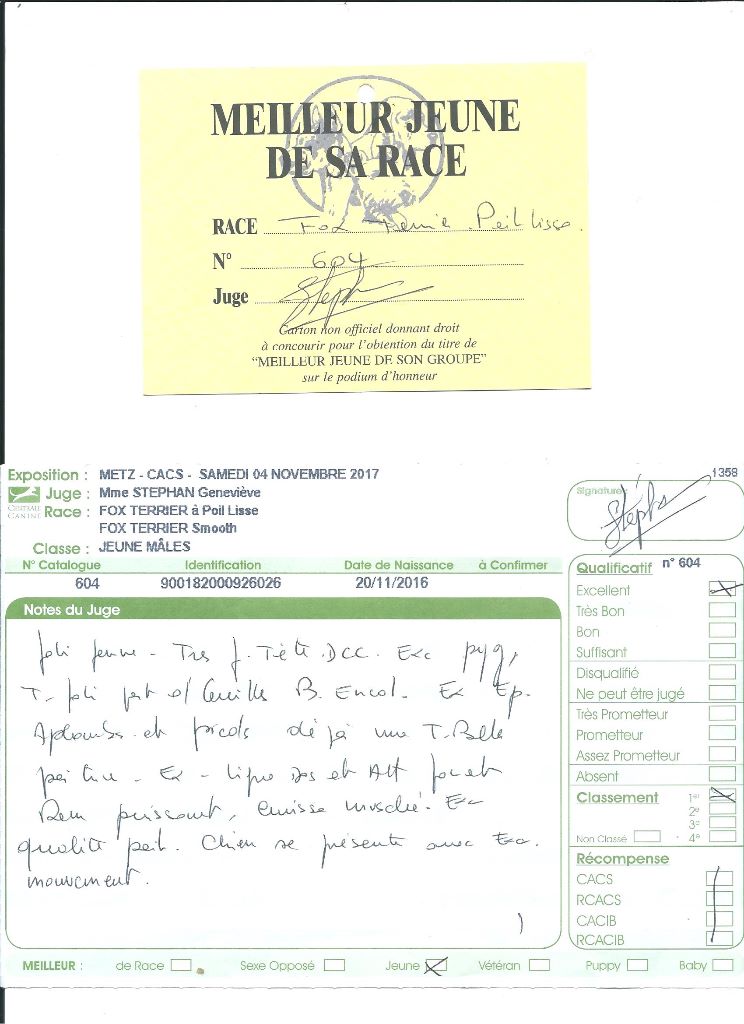 MEILLEUR JEUNE
DE SA RACE
RACE Fox Terrier Poil Lisse
N° 604
Juge Steph
Carton non officiel donnant droit
à concourir pour l'obtention du titre de
"MEILLEUR JEUNE DE SON GROUPE"
sur le podium d'honneur
Exposition : METZ - CACS - SAMEDI 04 NOVEMBRE 2017
1358
Juge : Mme STEPHAN Geneviève
CENTRALE CANINE
Race : FOX TERRIER à Poil Lisse
FOX TERRIER Smooth
Classe : JEUNE MÂLES
Signature :
N° Catalogue Identification Date de Naissance à Confirmer
604 900182000926026 20/11/2016
Notes du Juge
Joli jeune - Tres j. Tête. DCC. Exc
T. joli port d'oreilles B. Encol. Ex Ep.
Aplombs et pieds déjà une T. Belle
poitrine - Ex - ligne dos et Att fouet
Rein puissant, cuisse musclé. Exc
qualité poil. Chien se présente avec Exc.
mouvement.
Qualificatif n° 604
Excellent
Très Bon
Bon
Suffisant
Disqualifié
Ne peut être jugé
Très Prometteur
Prometteur
Assez Prometteur
Absent
Classement 1er
2e
3e
Non Classé 4e
Récompense
CACS
RCACS
CACIB
RCACIB
MEILLEUR : de Race Sexe Opposé Jeune Vétéran Puppy Baby